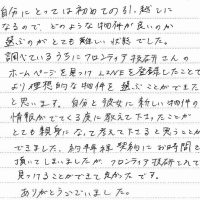 自分にとっては初めての引っ越しに
なるので、どのような物件が良いのか
選ぶのがとても難しい状態でした。
調べているうちにフロンティア技研さんの
ホームページを見つけLINEを登録したことで
より理想的な物件を選ぶことができた
と思います。自分と彼女に新しい物件の
情報がでてくる度に教えて下さったことが
とても親身になって考えて下さると思うことが
できました。約半年 契約にお時間を
頂いてしまいましたが、フロンティア技研さんで
見つけることができて良かったです。
ありがとうございました。